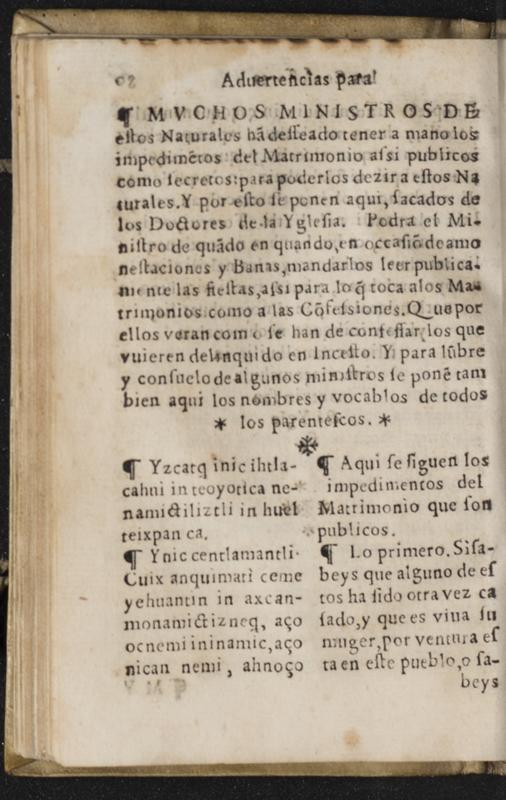 Aduertencias para
¶ MVCHOS MINISTROS DE
eſtos Naturales hã deſſeado tener a mano los
impedimẽtos del Matrimonio aſsi publicos
como ſecretos: para poderlos dezir a eſtos Na
turales. Y por eſto ſe ponen aqui, ſacados de
los Doctores de la Ygleſia. Podra el Mi-
niſtro de quãdo en quando, en occaſiõ de amo
neſtaciones y Banas, mandarlos leer publica-
mente las fieſtas, aſsi para lo q̃ toca a los Ma-
trimonios como a las Cõfeſsiones. Que por
ellos veran como ſe han de confeſſar, los que
vuieren delinquido en Inceſto. Y para lũbre
y conſuelo de algunos miniſtros ſe ponẽ tam
bien aqui los nombres y vocablos de todos
* los parenteſcos. *
¶ Yzcatq inic ihtla-
cahui in teoyotica ne-
namictiliztli in huel
teixpan ca.
¶ Ynic centlamantli.
Cuix anquimati ceme
yehuantin in axcan-
monamictizneq, aço
ocnemi ininamic, aço
nican nemi, ahnoço
¶ Aqui ſe ſiguen los
impedimentos del
Matrimonio que ſon
publicos.
¶ Lo primero. Siſa-
beys que alguno de eſ
tos ha ſido otra vez ca
ſado, y que es viua ſu
muger, por ventura eſ
ta en eſte pueblo, o ſa-
beys